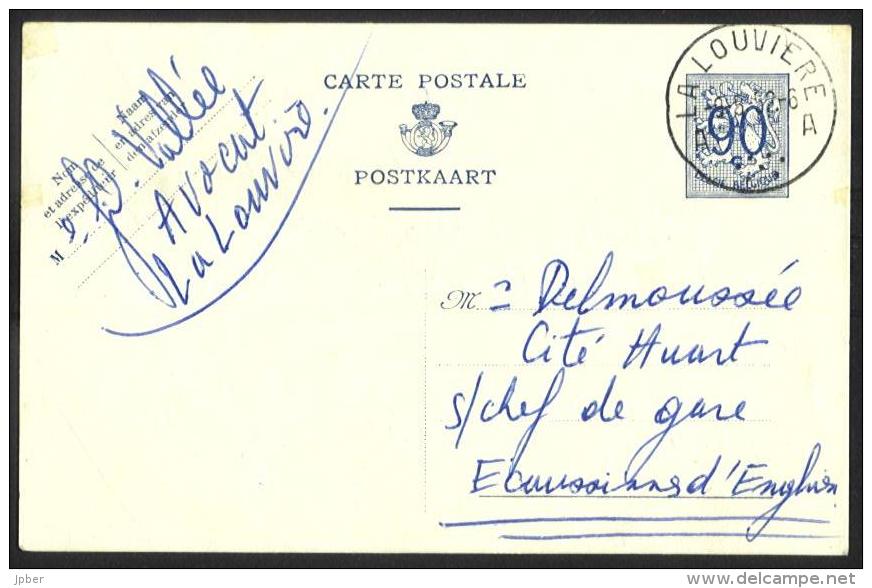 CARTE POSTALE
POSTKAART
LA LOUVIERE
A A
90
BELGIQUE
Nom
et adresse de
l'expéditeur
Naam
en adres van
den afzender
M
Vallée
Avocat
La Louvière.
M
Delmoussée
Cité Huart
s/chef de gare
Ecaussinnes d'Enghien
jpber
www.delcampe.net